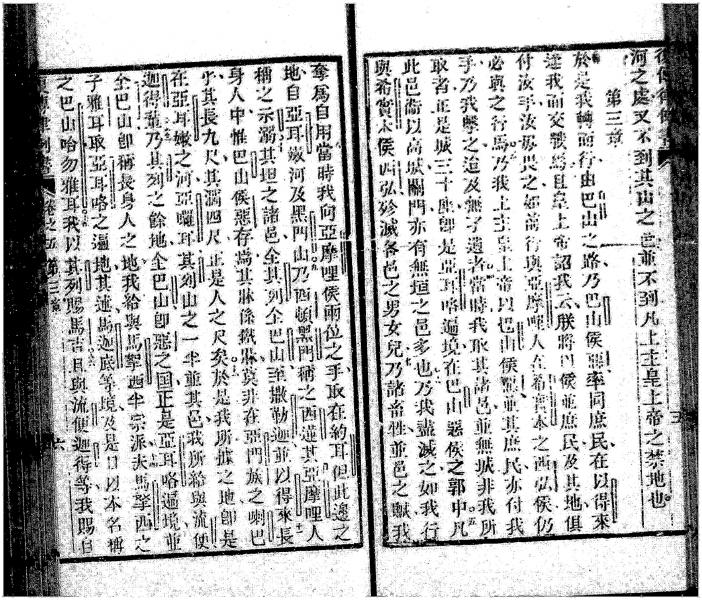 河之處又不到其山之邑並不到凡上主皇上帝之禁地也
第三章
於是我轉而行由巴山之路乃巴山侯惡率同庶民在以得來
我而交戰焉且皇上帝詔我云朕將因侯並庶民及其地俱
付汝手汝毋畏之如前行與亞摩哩人在希實本之西弘侯仍
必與之行焉乃我上主皇上帝以巴山侯惡並其庶民亦付我
手乃我擊之迨及無孑遺者當時我取其諸邑並無城非我所
取者正是城三十座即是亞耳略遍境在巴山惡侯之郭中凡
此邑衞以高城關門亦有無垣之邑多也乃我盡滅之如我行
與希實本侯西弘殄滅各邑之男女兒乃諸畜牲並邑之贓我
奪爲自用當時我向亞摩哩侯兩位之手取在約耳但此邊之
地自亞耳嫩河及黑門山乃西頓黑門稱之西蓮其亞摩哩人
稱之示溺其坦之諸邑全其列全巴山至撒勒迦並以得來長
身人中惟巴山侯惡存焉其牀係鐵牀莫非在亞門族之喇巴
乎其長九尺其濶四尺正是人之尺矣於是我所據之地卽是
在亞耳嫩之河亞囉耳其列山之一半並其邑我所給與流便
迦得輩乃其列之餘地全巴山卽惡之国正是亞耳略遍境並
全巴山卽稱長身人之地我給與馬拏西半宗派夫馬拏西之
子雅耳取亞耳略之遍地其連馬迦底等境及是日以本名稱
之巴山哈勿雅耳我以其列賜馬吉且與流便迦得等我賜自
卷之五 第三章
六
五